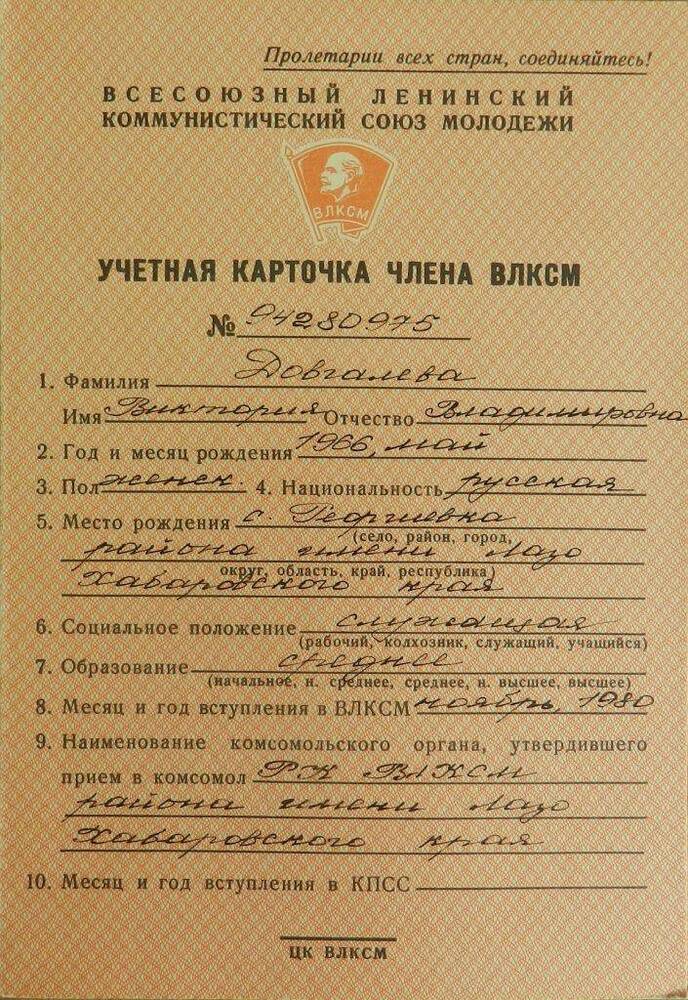 Пролетарии всех стран, соединяйтесь!
ВСЕСОЮЗНЫЙ ЛЕНИНСКИЙ
КОММУНИСТИЧЕСКИЙ СОЮЗ МОЛОДЕЖИ
ВЛКСМ
УЧЕТНАЯ КАРТОЧКА ЧЛЕНА ВЛКСМ
№ 94280975
1. Фамилия Довгалева
Имя Виктория Отчество Владимировна
2. Год и месяц рождения 1966, май
3. Пол женск. 4. Национальность русская
5. Место рождения с. Георгиевка
(село, район, город,
района имени Лазо
округ, область, край, республика)
Хабаровского края
6. Социальное положение служащая
(рабочий, колхозник, служащий, учащийся)
7. Образование среднее
(начальное, н. среднее, среднее, н. высшее, высшее)
8. Месяц и год вступления в ВЛКСМ ноябрь, 1980
9. Наименование комсомольского органа, утвердившего
прием в комсомол РК ВЛКСМ
района имени Лазо
Хабаровского края
10. Месяц и год вступления в КПСС
ЦК ВЛКСМ